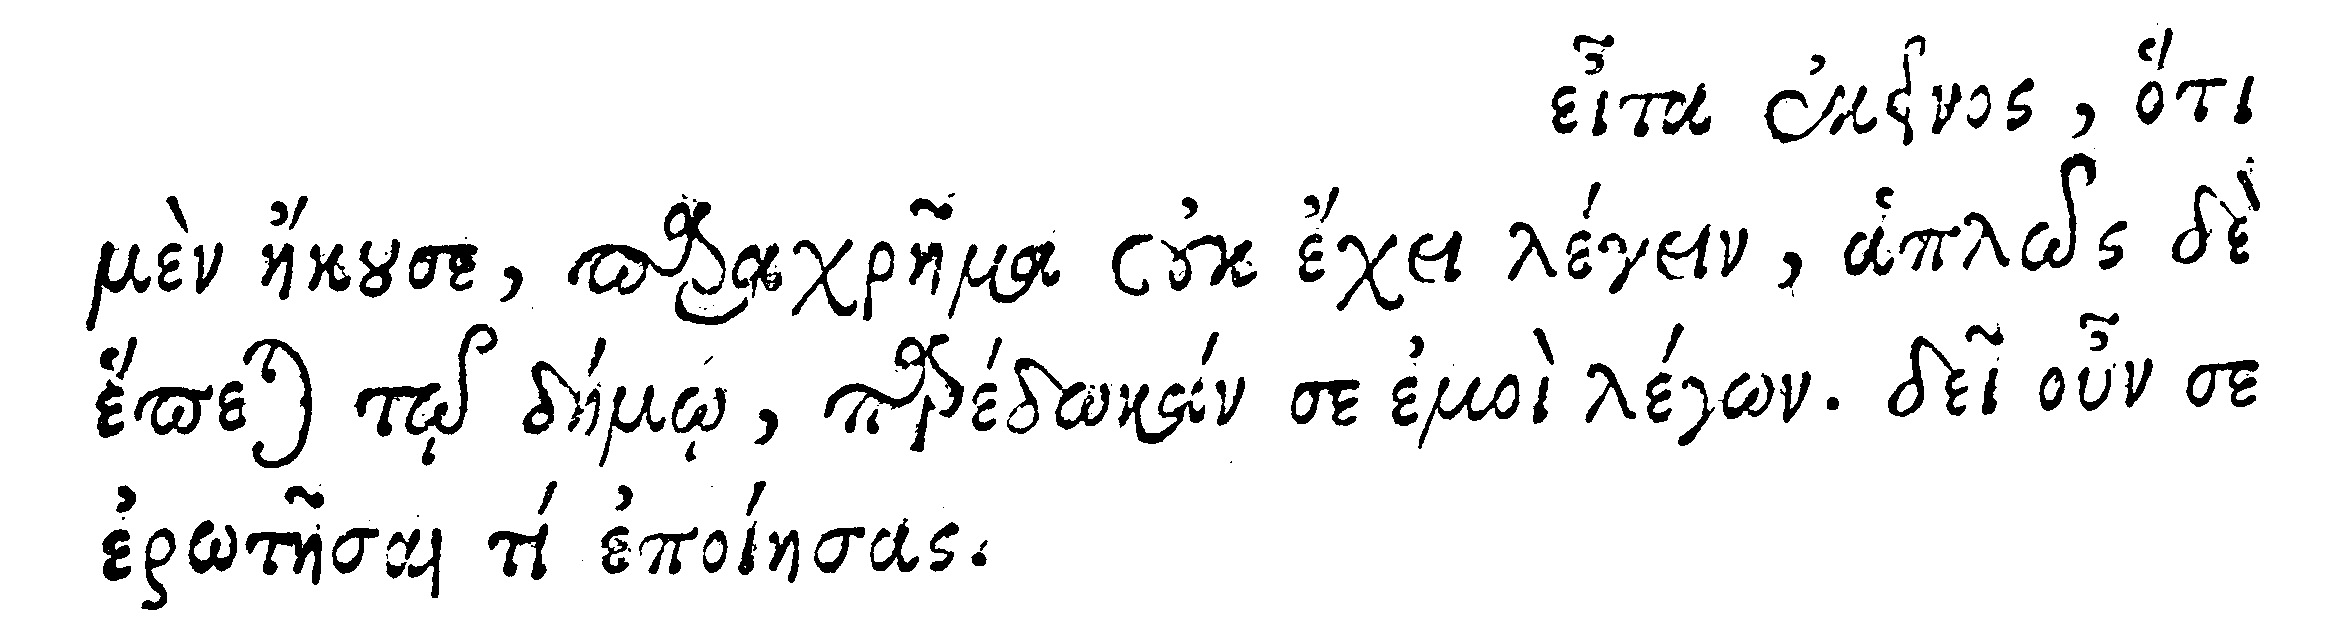 εἶτα ἐκεῖνος, ὅτι
μὲν ἤκουσε, παραχρῆμα οὐκ ἔχει λέγειν, ἁπλῶς δὲ
ἕπεται τῷ δήμῳ, παρέδωκάν σε ἐμοὶ λέγων. δεῖ οὖν σε
ἐρωτῆσαι τί ἐποίησας.